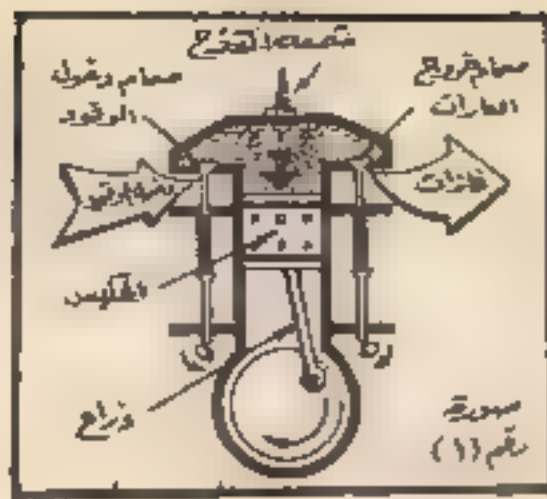 شمعة القدح
صمام دخول
الوقود
صمام خروج
الغازات
غازات
المكبس
ذراع
صورة
رقم (١)